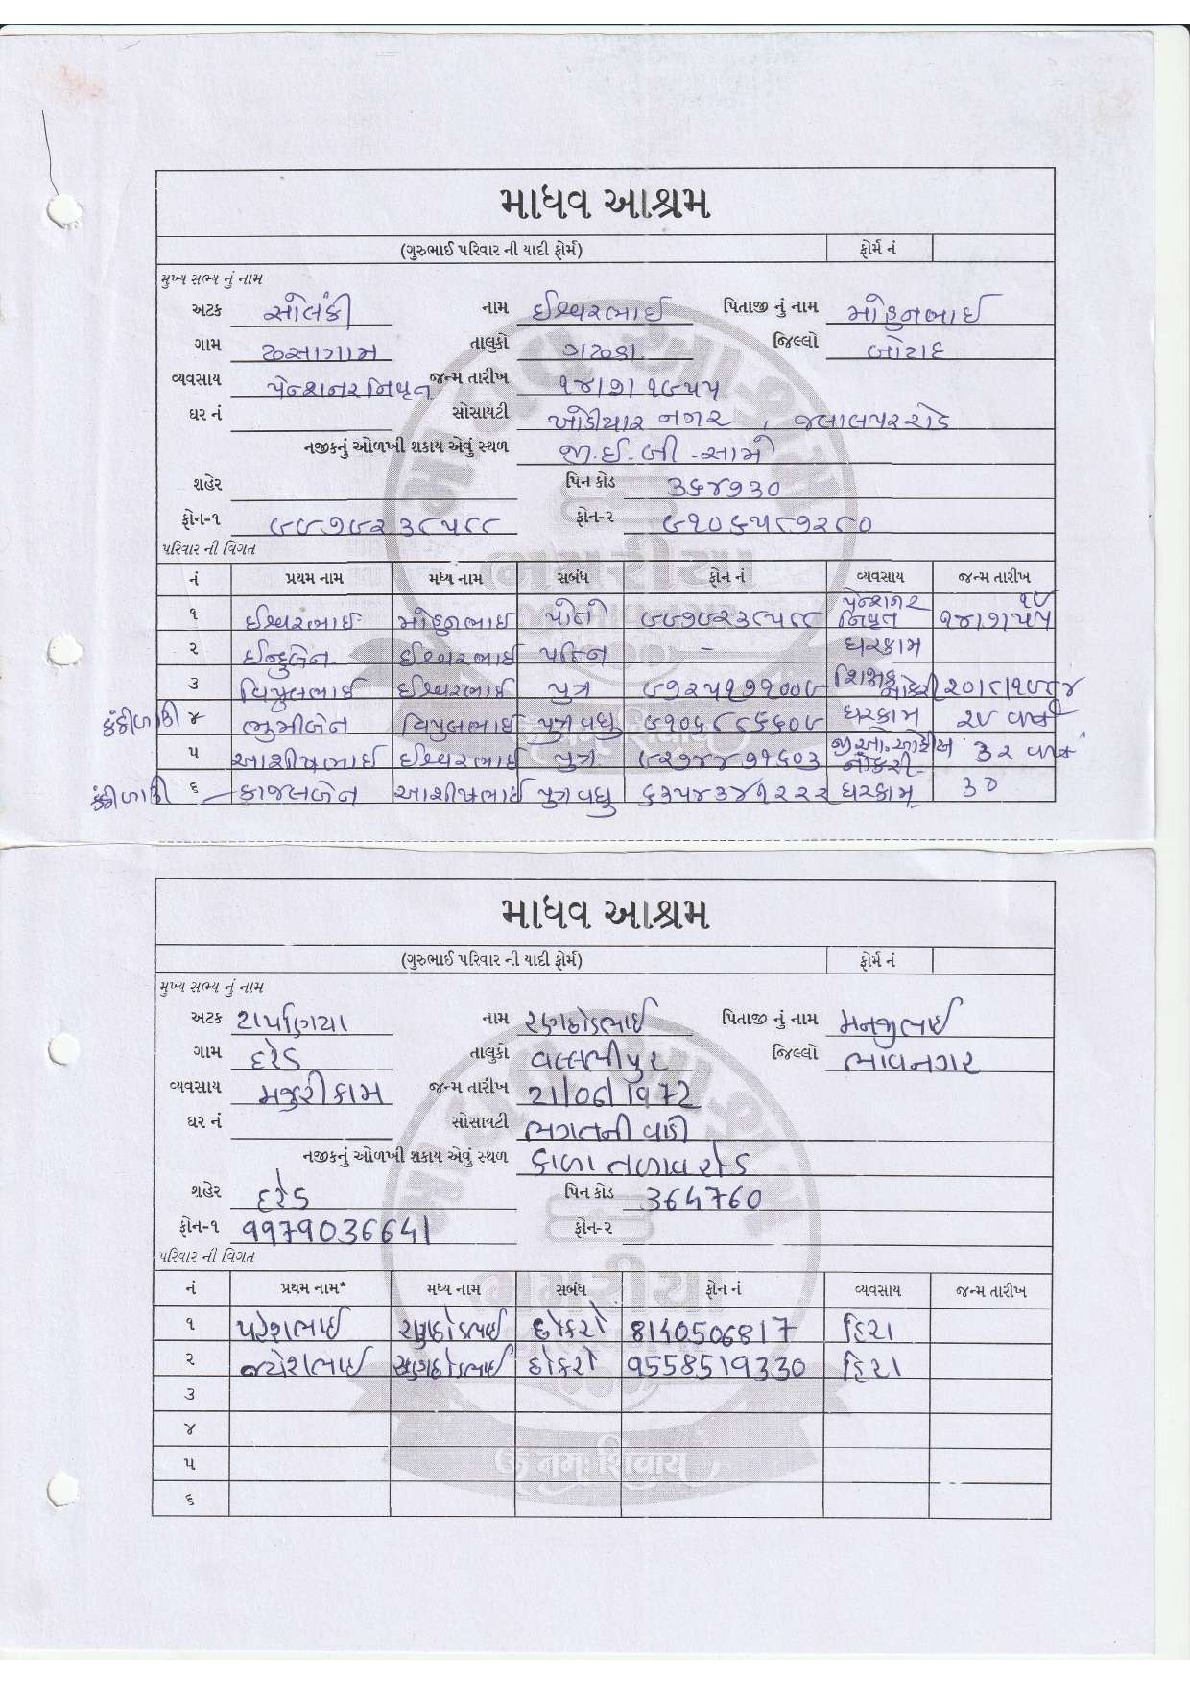 માધવ આશ્રમ
(ગુરુભાઈ પરિવાર ની યાદી ફોર્મ) ફોર્મ નં
મુખ્ય સભ્ય નું નામ
અટક સોલંકી નામ ઈશ્વરભાઈ પિતાજી નું નામ મોહનભાઈ
ગામ ઢસાગામ તાલુકો ગઢડા જિલ્લો બોટાદ
વ્યવસાય પેન્શનર નિવૃત જન્મ તારીખ ૧૪/૭/૧૯૫૫
ઘર નં સોસાયટી ખોડીયાર નગર, જલાલપર રોડ
નજીકનું ઓળખી શકાય એવું સ્થળ જી.ઈ.બી - સામે
શહેર પિન કોડ ૩૬૪૭૩૦
ફોન-૧ ૯૯૭૯૨૩૮૫૯૮ ફોન-૨ ૯૧૦૬૫૮૭૨૮૦
પરિવાર ની વિગત
નં પ્રથમ નામ મધ્ય નામ સબંધ ફોન નં વ્યવસાય જન્મ તારીખ
૧ ઈશ્વરભાઈ મોહનભાઈ પોતે પેન્શનર નિવૃત ૧૪/૭/૧૯૫૫
૨ ઈન્દુબેન ઈશ્વરભાઈ પત્નિ - ઘરકામ
૩ વિપુલભાઈ ઈશ્વરભાઈ પુત્ર ૯૭૨૫૧૭૧૦૦૯ શિક્ષક નોકરી
૪ ભુમીબેન વિપુલભાઈ પુત્ર વધુ ઘરકામ ૨૯ વર્ષ
૫ આશીષભાઈ ઈશ્વરભાઈ પુત્ર ૯૨૭૪૪૭૧૬૦૩ નોકરી ૩૨ વર્ષ
૬ કાજલબેન આશીષભાઈ પુત્ર વધુ ૬૩૫૪૩૪૧૨૨૨ ઘરકામ ૩૦
માધવ આશ્રમ
(ગુરુભાઈ પરિવાર ની યાદી ફોર્મ) ફોર્મ નં
મુખ્ય સભ્ય નું નામ
અટક રાપણિયા નામ રણછોડભાઈ પિતાજી નું નામ મનજીભાઈ
ગામ દરેડ તાલુકો વલ્લભીપુર જિલ્લો ભાવનગર
વ્યવસાય મજુરીકામ જન્મ તારીખ 21/06/1972
ઘર નં સોસાયટી ભગતની વાડી
નજીકનું ઓળખી શકાય એવું સ્થળ કાળા તળાવ રોડ
શહેર દરેડ પિન કોડ 364760
ફોન-૧ 9979036641 ફોન-૨
પરિવાર ની વિગત
નં પ્રથમ નામ મધ્ય નામ સબંધ ફોન નં વ્યવસાય જન્મ તારીખ
૧ પરેશભાઈ રણછોડભાઈ છોકરો 8140506817 હિરા
૨ જયેશભાઈ રણછોડભાઈ છોકરો 9558519330 હિરા
૩
૪
૫
૬
ૐ નમઃ શિવાય